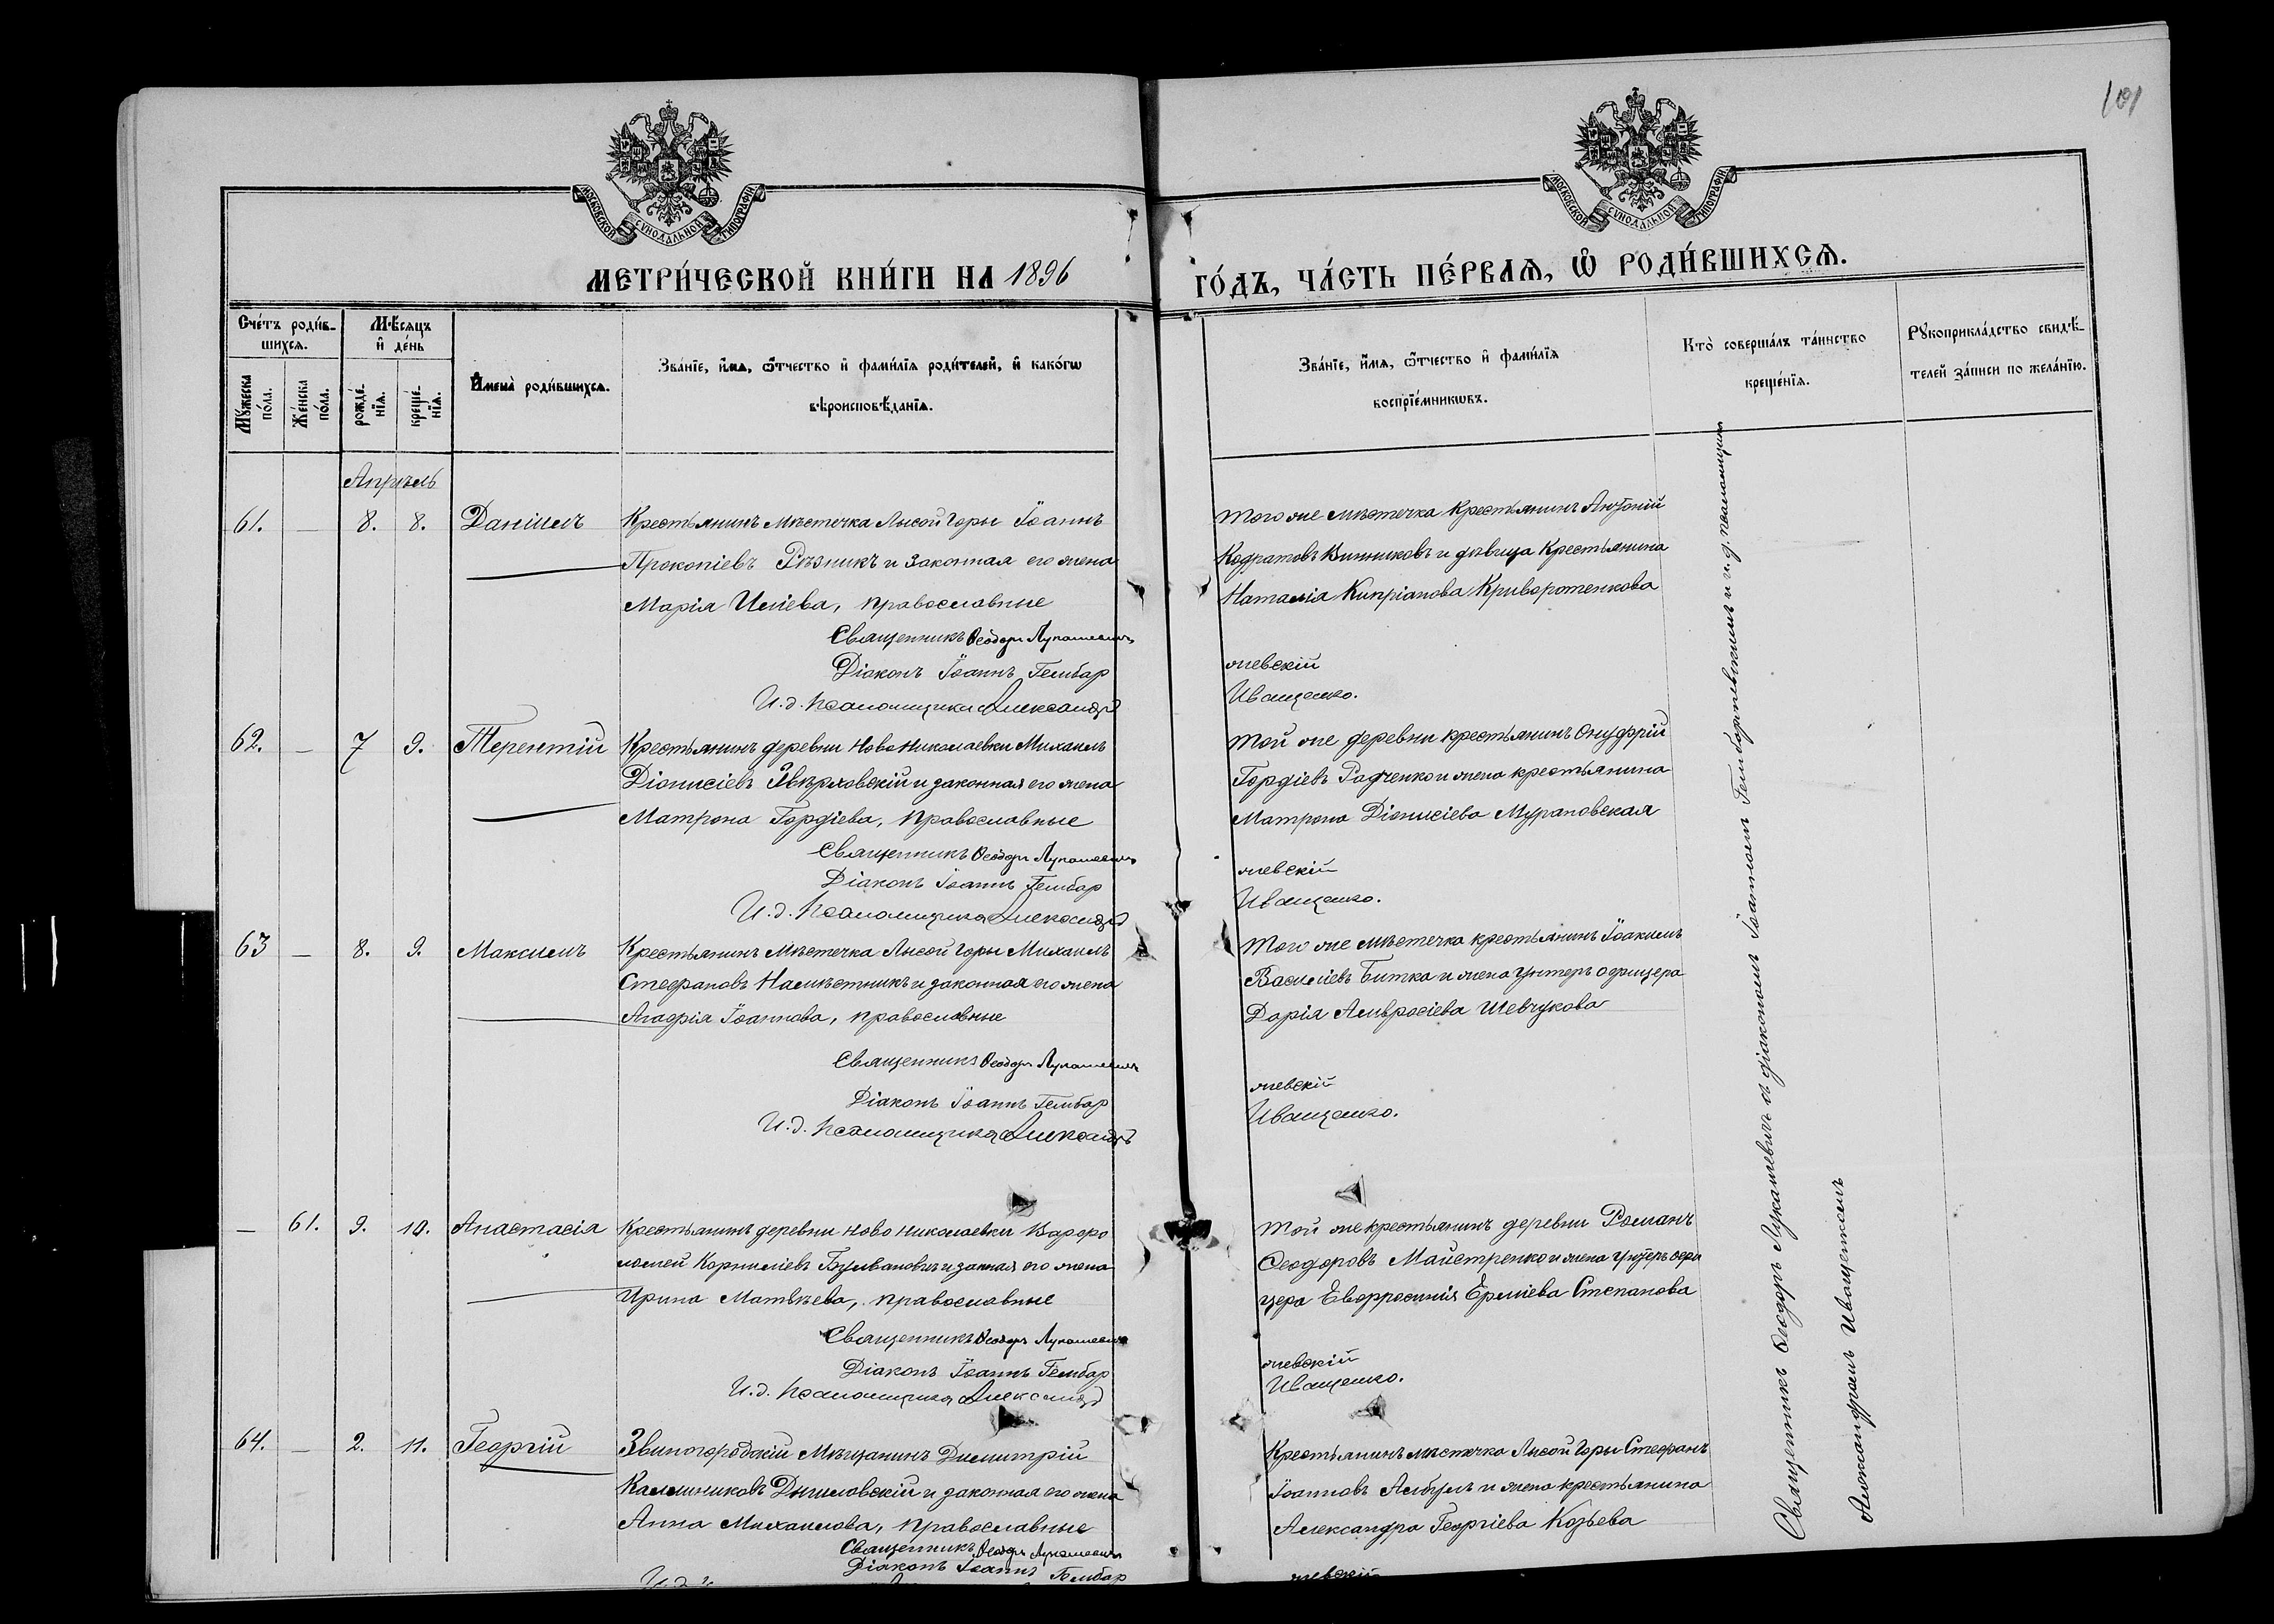 101
МОСКОВСКОЙ СѴНОДАЛЬНОЙ ТИПОГРАФІИ
МОСКОВСКОЙ СѴНОДАЛЬНОЙ ТИПОГРАФІИ
МЕТРИ́ЧЕСКОЙ КНИ́ГИ НА 1896
ГО́ДЪ, ЧА́СТЬ ПЕ́РВАЯ, Ѽ РОДИ́ВШИХСЯ.
Сче́тъ роди́в-
шихся.
Мꙋжеска по́ла.
Же́нска по́ла.
Мѣ́сяцъ
и҆ де́нь
рожде́-нїя.
креще́-нїя.
И҆мена̀ роди́вшихся.
Зва́нїе, и҆́мя, ѻ҆́тчество и҆ фами́лїя роди́телей, и҆ како́гѡ
вѣроисповѣ́данїя.
Зва́нїе, и҆́мя, ѻ҆́тчество и҆ фами́лїя
воспрїе́мникѡвъ.
Кто̀ соверша́лъ та́инство
креще́нїя.
Рꙋкоприкла́дство свидѣ́-
телей за́писи по жела́нїю.
Апрѣль
61. — 8. 8. Даніилъ
Крестьянинъ Мѣстечка Лысой Горы Іоаннъ
Прокопіевъ Рѣзникъ и законная его жена
Марія Иліева, православные
Священникъ Ѳеодоръ Лукашевичъ
Діаконъ Іоаннъ Гембар
И.д. Псаломщика Александр
Того же мѣстечка крестьянинъ Антоній
Кодратовъ Винниковъ и дѣвица крестьянина
Наталія Кипріанова Криворотенкова
жевскій
Иващенко.
62. — 7 9. Терентій
Крестьянинъ деревни Ново Николаевки Михаилъ
Діонисіевъ и законная его жена
Матрона Гордіева, православные
Священникъ Ѳеодоръ Лукашевичъ
Діаконъ Іоаннъ Гембар
И.д. Псаломщика Александр
Той же деревни крестьянинъ Онуфрій
Гордіевъ Радченко и жена крестьянина
Матрона Діонисіева Мурановская
жевскій
Иващенко.
63 — 8. 9. Максимъ
Крестьянинъ Мѣстечка Лысой Горы Михаилъ
Стефановъ Намѣстникъ и законная его жена
Агафія Іоаннова, православные
Священникъ Ѳеодоръ Лукашевичъ
Діаконъ Іоаннъ Гембар
И.д. Псаломщика Александръ
Того же мѣстечка крестьянинъ Іоакимъ
Василіевъ Битка и жена унтеръ офицера
Дарія Амвросіева Шевчукова
жевскій
Иващенко.
— 61. 9. 10. Анастасія
Крестьянинъ деревни Ново Николаевки Варфо
ломей Корниліевъ и законная его жена
Ирина Матвѣева, православные
Священникъ Ѳеодоръ Лукашевичъ
Діаконъ Іоаннъ Гембар
И.д. Псаломщика Александ
Той же крестьянинъ деревни Романъ
Ѳеодоровъ Майстренко и жена унтеръ офи
цера Евфросинія Ерміева Степанова
жевскій
Иващенко.
64. — 2. 11. Георгій
Звиногородскій Мѣщанинъ Димитрій
Каллиниковъ и законная его жена
Анна Михаилова, православные
Священникъ Ѳеодоръ Лукашевичъ
Діаконъ Іоаннъ Гембар
И.д.
Крестьянинъ мѣстечка Лысой Горы Стефанъ
Іоанновъ Албулъ и жена крестьянина
Александра Георгіева Козьева
жевскій
Священникъ Ѳеодоръ Лукашевичъ съ діакономъ Іоанномъ Гембаржевскимъ и и.д. псаломщика
Александромъ Иващенкомъ